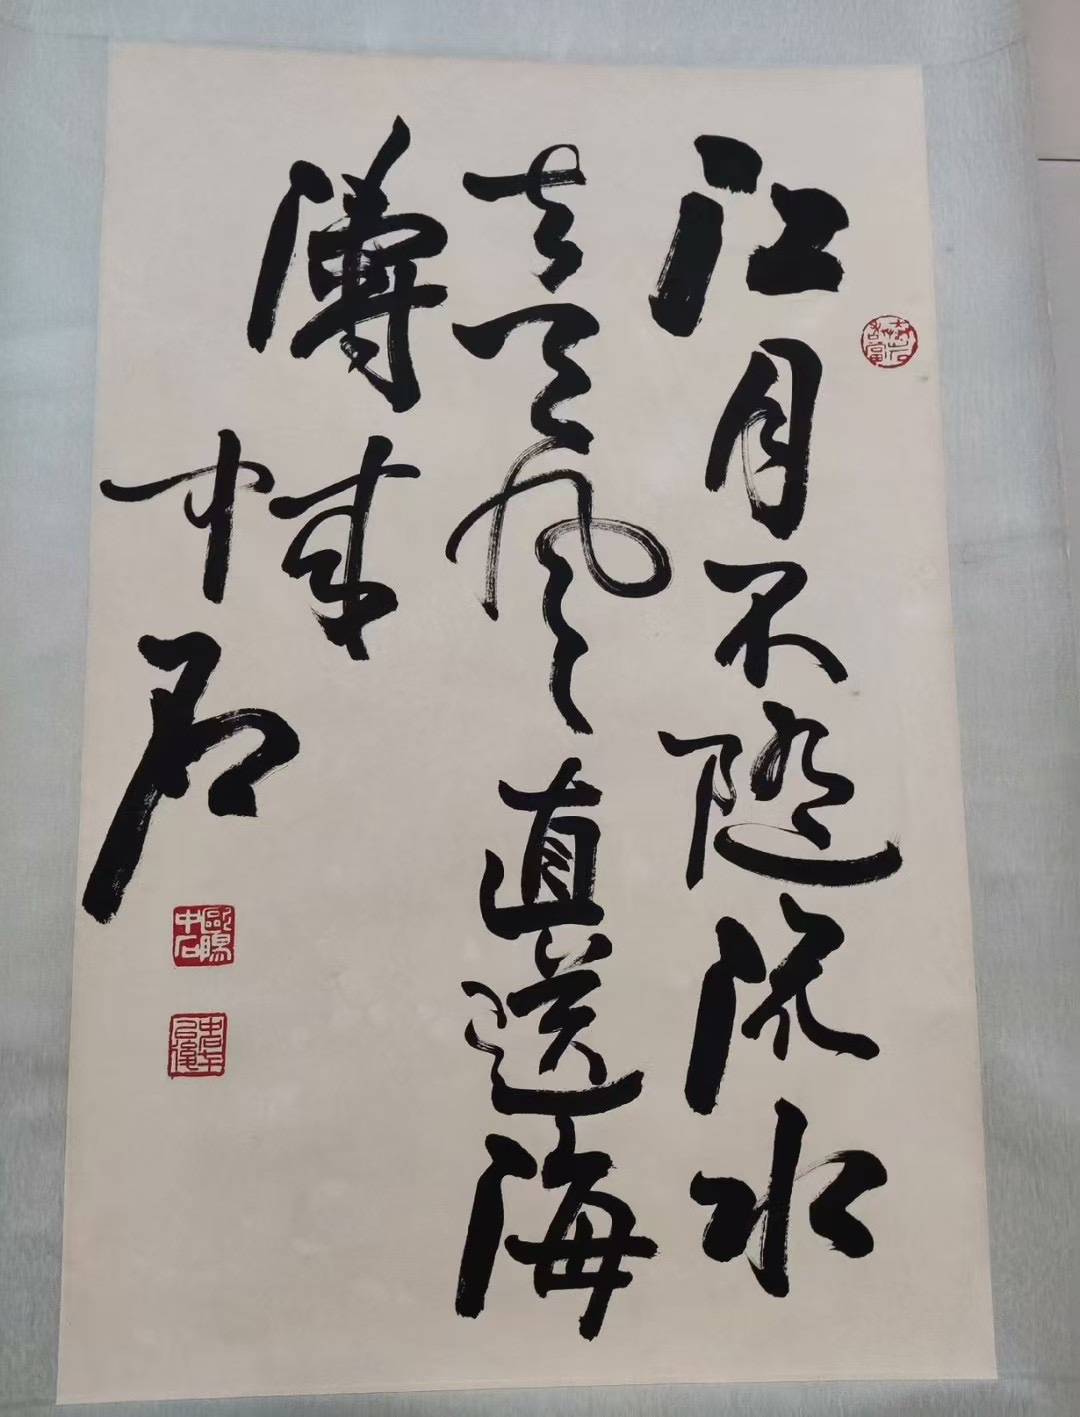 江月不随流水
去天風直送海
濤来
中石
歐陽
中石